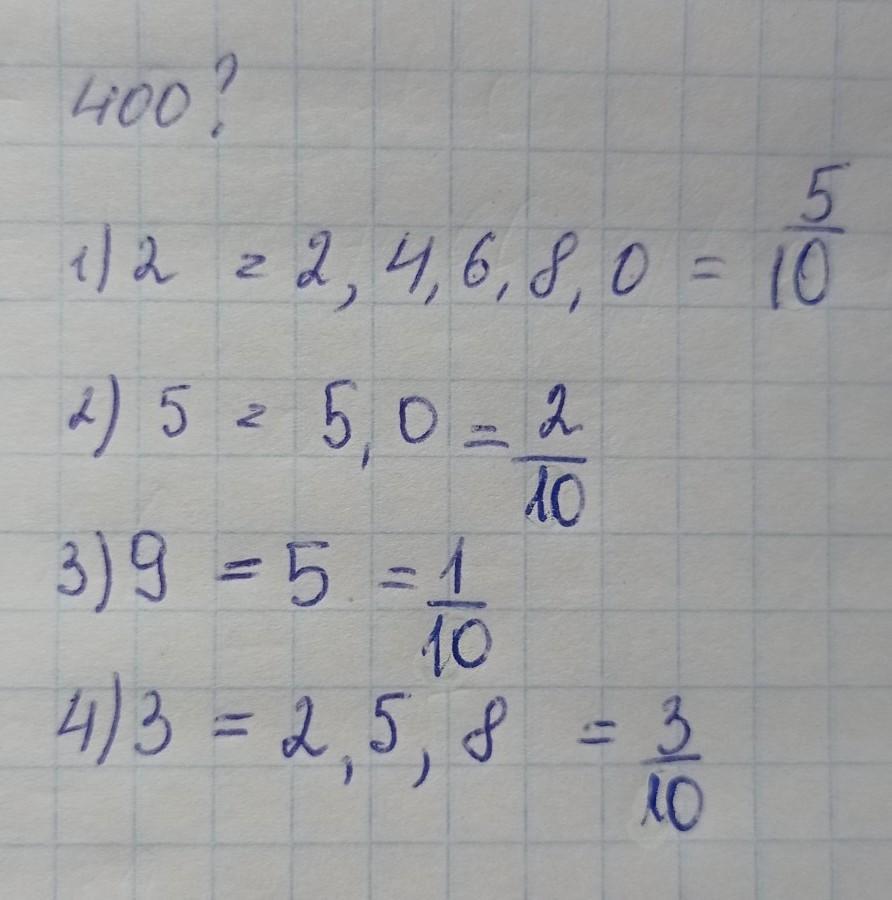 400?
1) 2 = 2, 4, 6, 8, 0 = 5/10
2) 5 = 5, 0 = 2/10
3) 9 = 5 = 1/10
4) 3 = 2, 5, 8 = 3/10